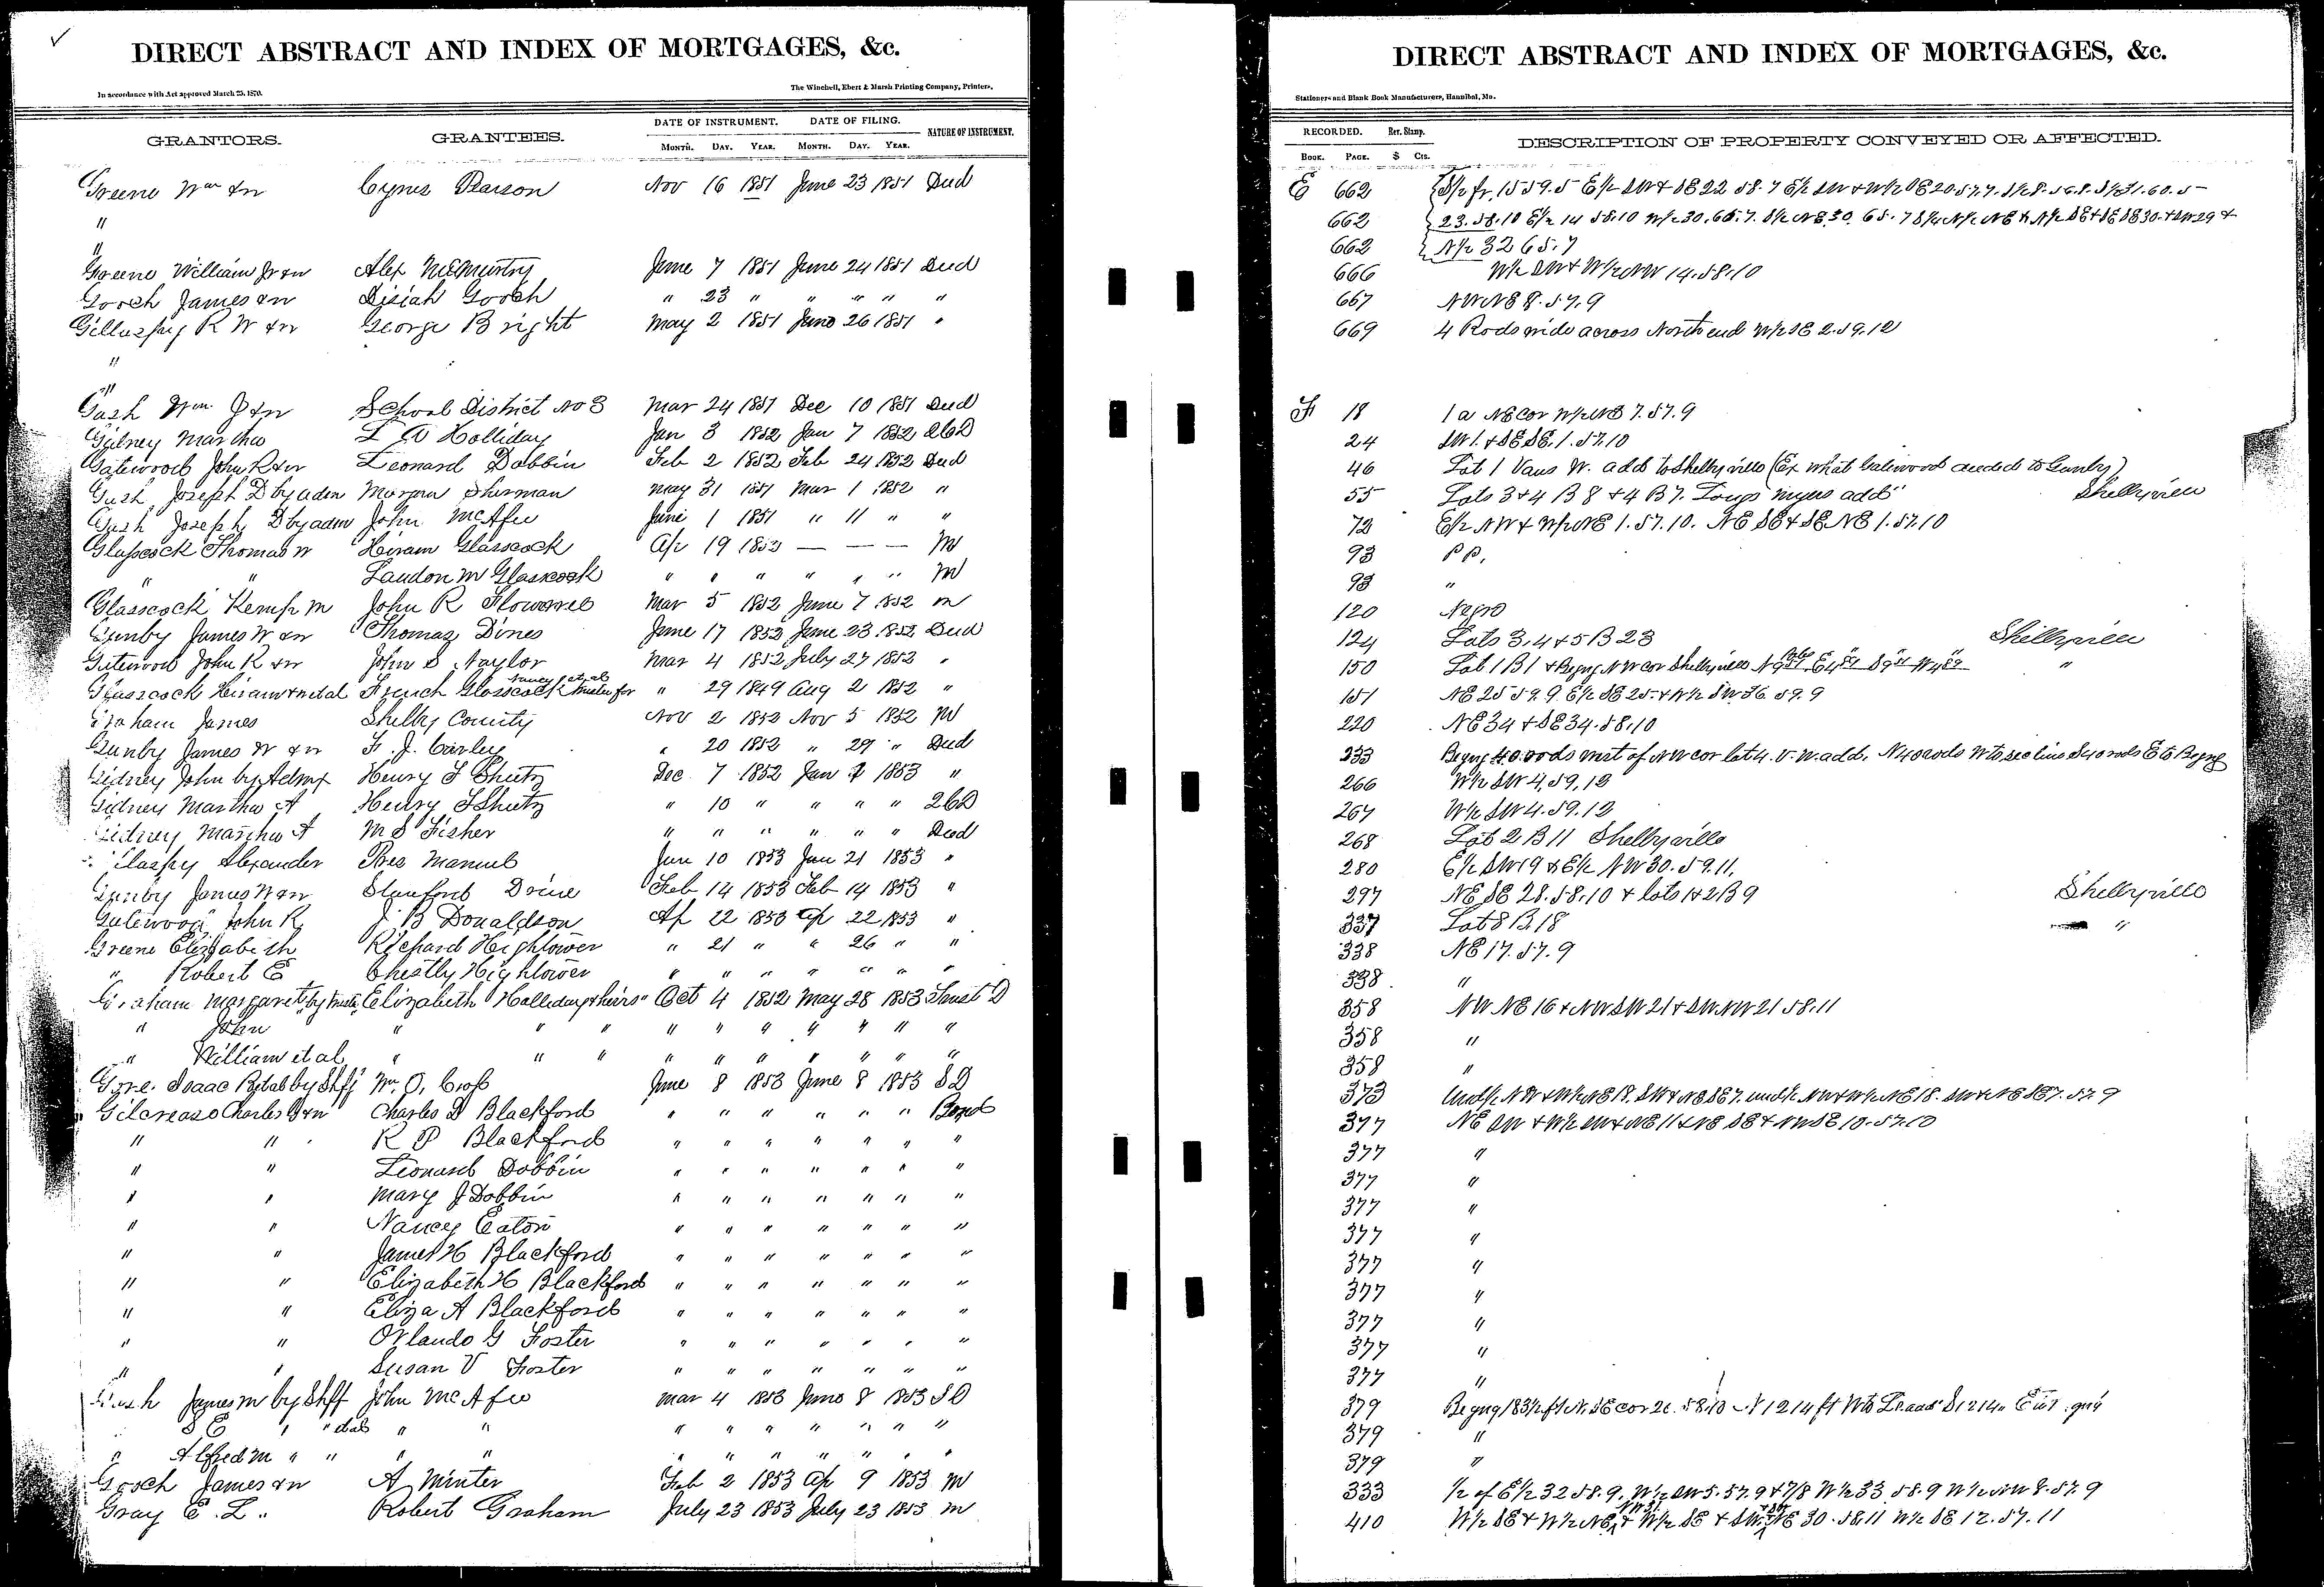 DIRECT ABSTRACT AND INDEX OF MORTGAGES, &c.
In accordance with Act approved March 25, 1870.
The Winchell, Ebert & Marsh Printing Company, Printers,
GRANTORS. GRANTEES. DATE OF INSTRUMENT. DATE OF FILING. NATURE OF INSTRUMENT.
MONTH. DAY. YEAR. MONTH. DAY. YEAR.
Greene Wm & w Cyrus Pearson Nov 16 1851 June 23 1851 Deed
"
"
Greene William Jr & w Alex McMurtry June 7 1851 June 24 1851 Deed
Gooch James & w Gooch " 23 " " " " "
Gillaspy R W & w George Bright May 2 1851 June 26 1851 "
"
"
Gash Wm J & w School District No 3 Mar 24 1851 Dec 10 1851 Deed
Gidney Martha Holliday Jan 3 1852 Jan 7 1852
Gatewood John R & w Leonard Dobbin Feb 2 1852 Feb 24 1852 Deed
Gash Joseph D by adm Morgan Sherman May 31 1851 Mar 1 1852 "
Gash Joseph D by adm John McAfee June 1 1851 " 11 " "
Glasscock Thomas W Hiram Glasscock Ap 19 1852 — — — M
" " Landon M Glasscock " " " " " " M
Glasscock Kemp M John R Flowerree Mar 5 1852 June 7 1852 M
Gunby James W & w Thomas Dines June 17 1852 June 23 1852 Deed
Gatewood John R & w John S Naylor Mar 4 1852 July 27 1852 "
Glasscock Hiram & w et al French Glasscock trustee for Nancy et al " 29 1849 Aug 2 1852 "
Graham James Shelby County Nov 2 1852 Nov 5 1852 M
Gunby James W & w F. J. Carley " 20 1852 " 29 " Deed
Gidney John by Admx Henry F Shutz Dec 7 1852 Jan 1853 "
Gidney Martha A Henry F Shutz " 10 " " " "
Gidney Martha A M S Fisher " " " " " " Deed
Alexander Pres Manuel Jan 10 1853 Jan 21 1853 "
Gunby James W & w Stanford Drine Feb 14 1853 Feb 14 1853 "
Gatewood John R J B Donaldson Ap 22 1853 Ap 22 1853 "
Greene Elizabeth Richard Hightower " 21 " " 26 " "
" Robert E Chestly Hightower " " " " " " "
Graham Margaret by trustee Elizabeth Holliday & heirs Oct 4 1852 May 28 1853 Trust D
" John " " " " " " " " " "
" William et al " " " " " " " " " "
Gore Isaac R et al by Shff Wm O. Cross June 8 1853 June 8 1853 S D
Gilcrease Charles G & w Charles D Blackford " " " " " " Bond
" " R P Blackford " " " " " " "
" " Leonard Dobbin " " " " " " "
" " Mary J Dobbin " " " " " " "
" " Nancy Eaton " " " " " " "
" " James H Blackford " " " " " " "
" " Elizabeth H Blackford " " " " " " "
" " Eliza A Blackford " " " " " " "
" " Orlando G Foster " " " " " " "
" " Susan V Foster " " " " " " "
James M by Shff John McAfee Mar 4 1853 June 8 1853 S D
S E " " et al " " " " " " " " "
" Alfred M " " " " " " " " " " "
Gooch James & w A Minter Feb 2 1853 Ap 9 1853 M
Gray E. L. Robert Graham July 23 1853 July 23 1853 M
DIRECT ABSTRACT AND INDEX OF MORTGAGES, &c.
Stationers and Blank Book Manufacturers, Hannibal, Mo.
RECORDED. Rev. Stamp. DESCRIPTION OF PROPERTY CONVEYED OR AFFECTED.
BOOK. PAGE. $ CTS.
E 662
662
662 N½ 32 65.7
666 W½ SW & W½ NW 14.58.10
667 NW NE 8.57.9
669 4 Rods wide across North end W½ SE 2.59.12
F 18 1 a NE cor W½ NE 7.57.9
24 SW 1. & SE SE 1.57.10
46 Lot 1 Vans W. add to Shelbyville (Ex what Gatewood deeded to Gunby)
55 Lots 3 & 4 B 8 & 4 B 7. add Shelbyville
72 E½ NW & W½ NE 1.57.10. NE SE & SE NE 1.57.10
93 P P.
93 "
120 Negro
124 Lots 3, 4 & 5 B 23 Shelbyville
150 Lot 1 B 1 & Begng NW cor Shelbyville "
151 NE 25 59.9 E½ SE 25 & W½ SW 36 59.9
220 NE 34 & SE 34.58.10
233 Begng 40 rods west of NW cor lot 4. V. W. add. N 40 rods W to sec line S 40 rods E to Begng
266 W½ SW 4.59.12
267 W½ SW 4.59.12
268 Lot 2 B 11 Shelbyville
280 E½ SW 19 & E½ NW 30.59.11.
297 NE SE 28.58.10 & lots 1 & 2 B 9 Shelbyville
337 Lot 8 B 18 "
338 NE 17.57.9
338 "
358 NW NE 16 & NW SW 21 & SW NW 21 58.11
358 "
358 "
373 Und½ NW & W½ NE 18. SW & NE SE 7. und½ NW & W½ NE 18. SW & NE SE 7.57.9
377 NE SW & W½ SW & NE 11 & NE SE & NW SE 10.57.10
377 "
377 "
377 "
377 "
377 "
377 "
377 "
377 "
377 "
379 Begng 183½ ft N. SE cor
379 "
379 "
333 ½ of E½ 32 58.9. W½ SW 5.57.9 & 7/8 W½ 33 58.9 W½ NW 8.57.9
410 W½ SE & W½ NE & W½ SE & 30.58.11 W½ SE 12.57.11